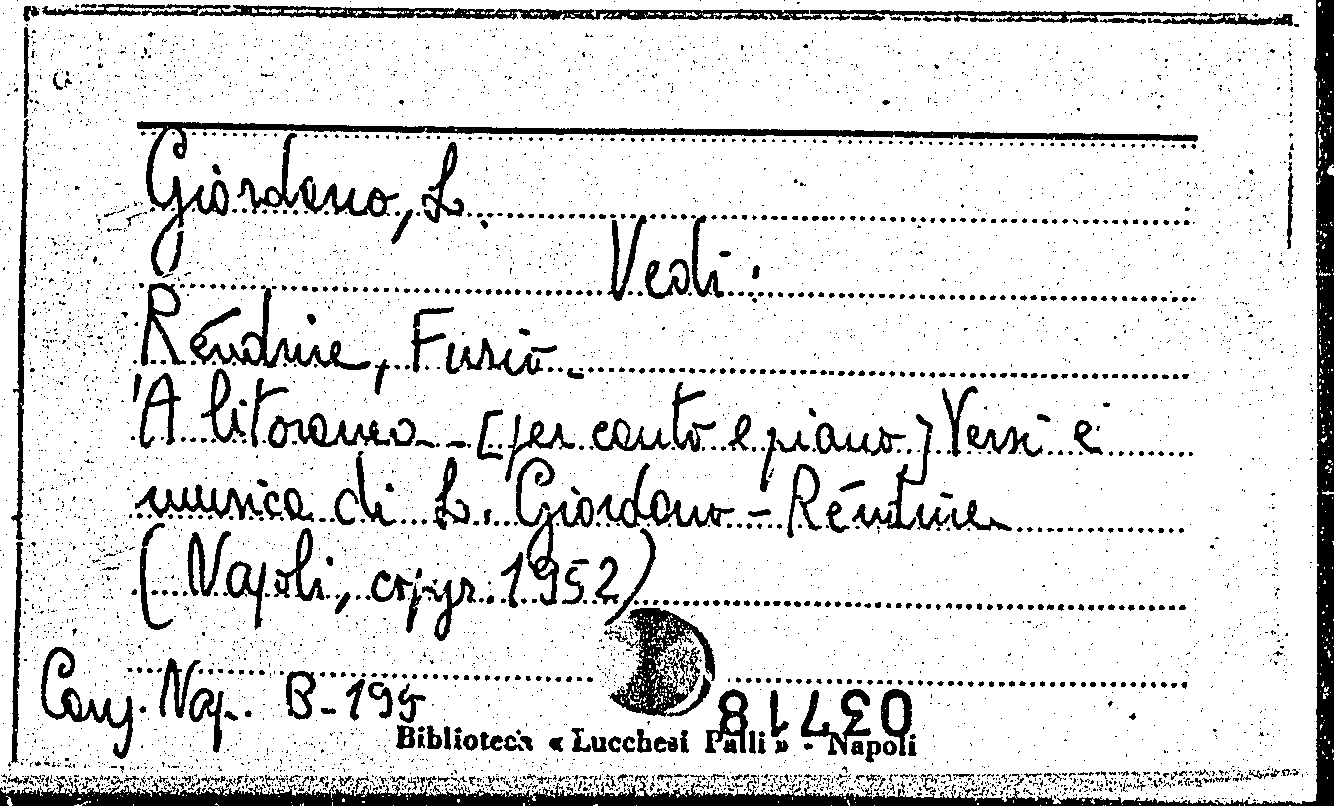 Giordano, L.
Vedi:
Réndine, Furio.
'A litoranea - [per canto e piano] Versi e
musica di L. Giordano - Réndine
(Napoli, copyr. 1952)
Canz. Nap. B-195
03718
Biblioteca « Lucchesi Palli » - Napoli